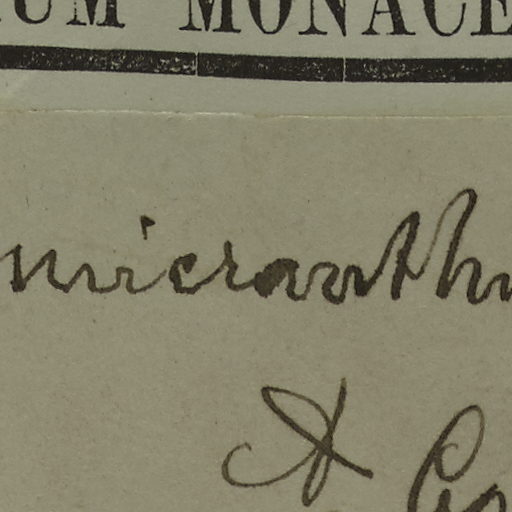 IUM MONACE
micranth
A. Co